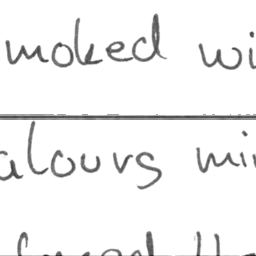 moked wi
alours min